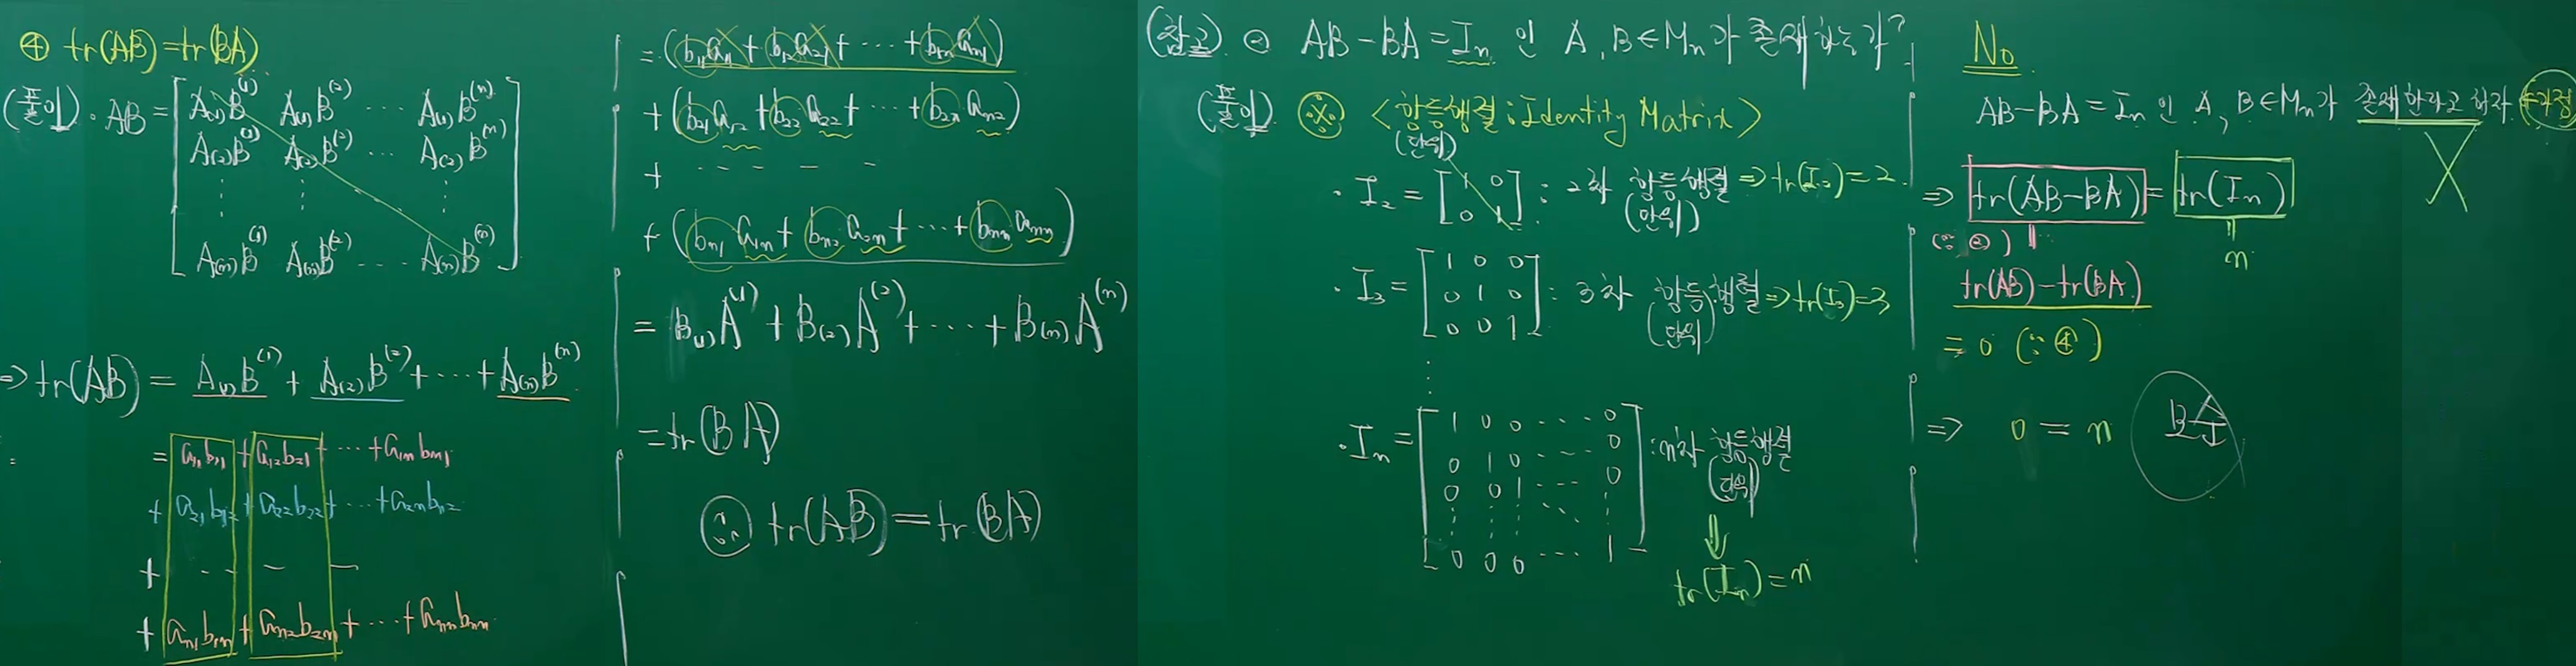 ④ tr(AB)=tr(BA)
(풀이). AB = [ A(1)B^(1) A(1)B^(2) ⋯ A(1)B^(n)
A(2)B^(1) A(2)B^(2) ⋯ A(2)B^(n)
⋮ ⋮ ⋮
A(n)B^(1) A(n)B^(2) ⋯ A(n)B^(n) ]
⇒ tr(AB) = A(1)B^(1) + A(2)B^(2) + ⋯ + A(n)B^(n)
= a11b11 + a12b21 + ⋯ + a1nbn1
+ a21b12 + a22b22 + ⋯ + a2nbn2
+ ⋯ − −
+ an1b1n + an2b2n + ⋯ + annbnn
= (b11a11 + b12a21 + ⋯ + b1nan1)
+ (b21a12 + b22a22 + ⋯ + b2nan2)
+ ⋯
+ (bn1a1n + bn2a2n + ⋯ + bnnann)
= B(1)A^(1) + B(2)A^(2) + ⋯ + B(n)A^(n)
= tr(BA)
∴ tr(AB) = tr(BA)
(참고) ② AB − BA = In 인 A, B ∈ Mn 가 존재하는가?
(풀이) ※ <항등행렬 : Identity Matrix>
(단위)
· I2 = [ 1 0
0 1 ] : 2차 항등행렬 ⇒ tr(I2) = 2
(단위)
· I3 = [ 1 0 0
0 1 0
0 0 1 ] : 3차 항등행렬 ⇒ tr(I3) = 3
(단위)
⋮
· In = [ 1 0 0 ⋯ 0
0 1 0 ⋯ 0
0 0 1 ⋯ 0
⋮ ⋮ ⋮ ⋱ ⋮
0 0 0 ⋯ 1 ] : n차 항등행렬
(단위)
⇓
tr(In) = n
No
AB − BA = In 인 A, B ∈ Mn 가 존재한다고 하자
⇒ tr(AB−BA) = tr(In)
(∵ ②) ‖ ‖
n
tr(AB) − tr(BA)
= 0 (∵ ④)
⇒ 0 = n 모순